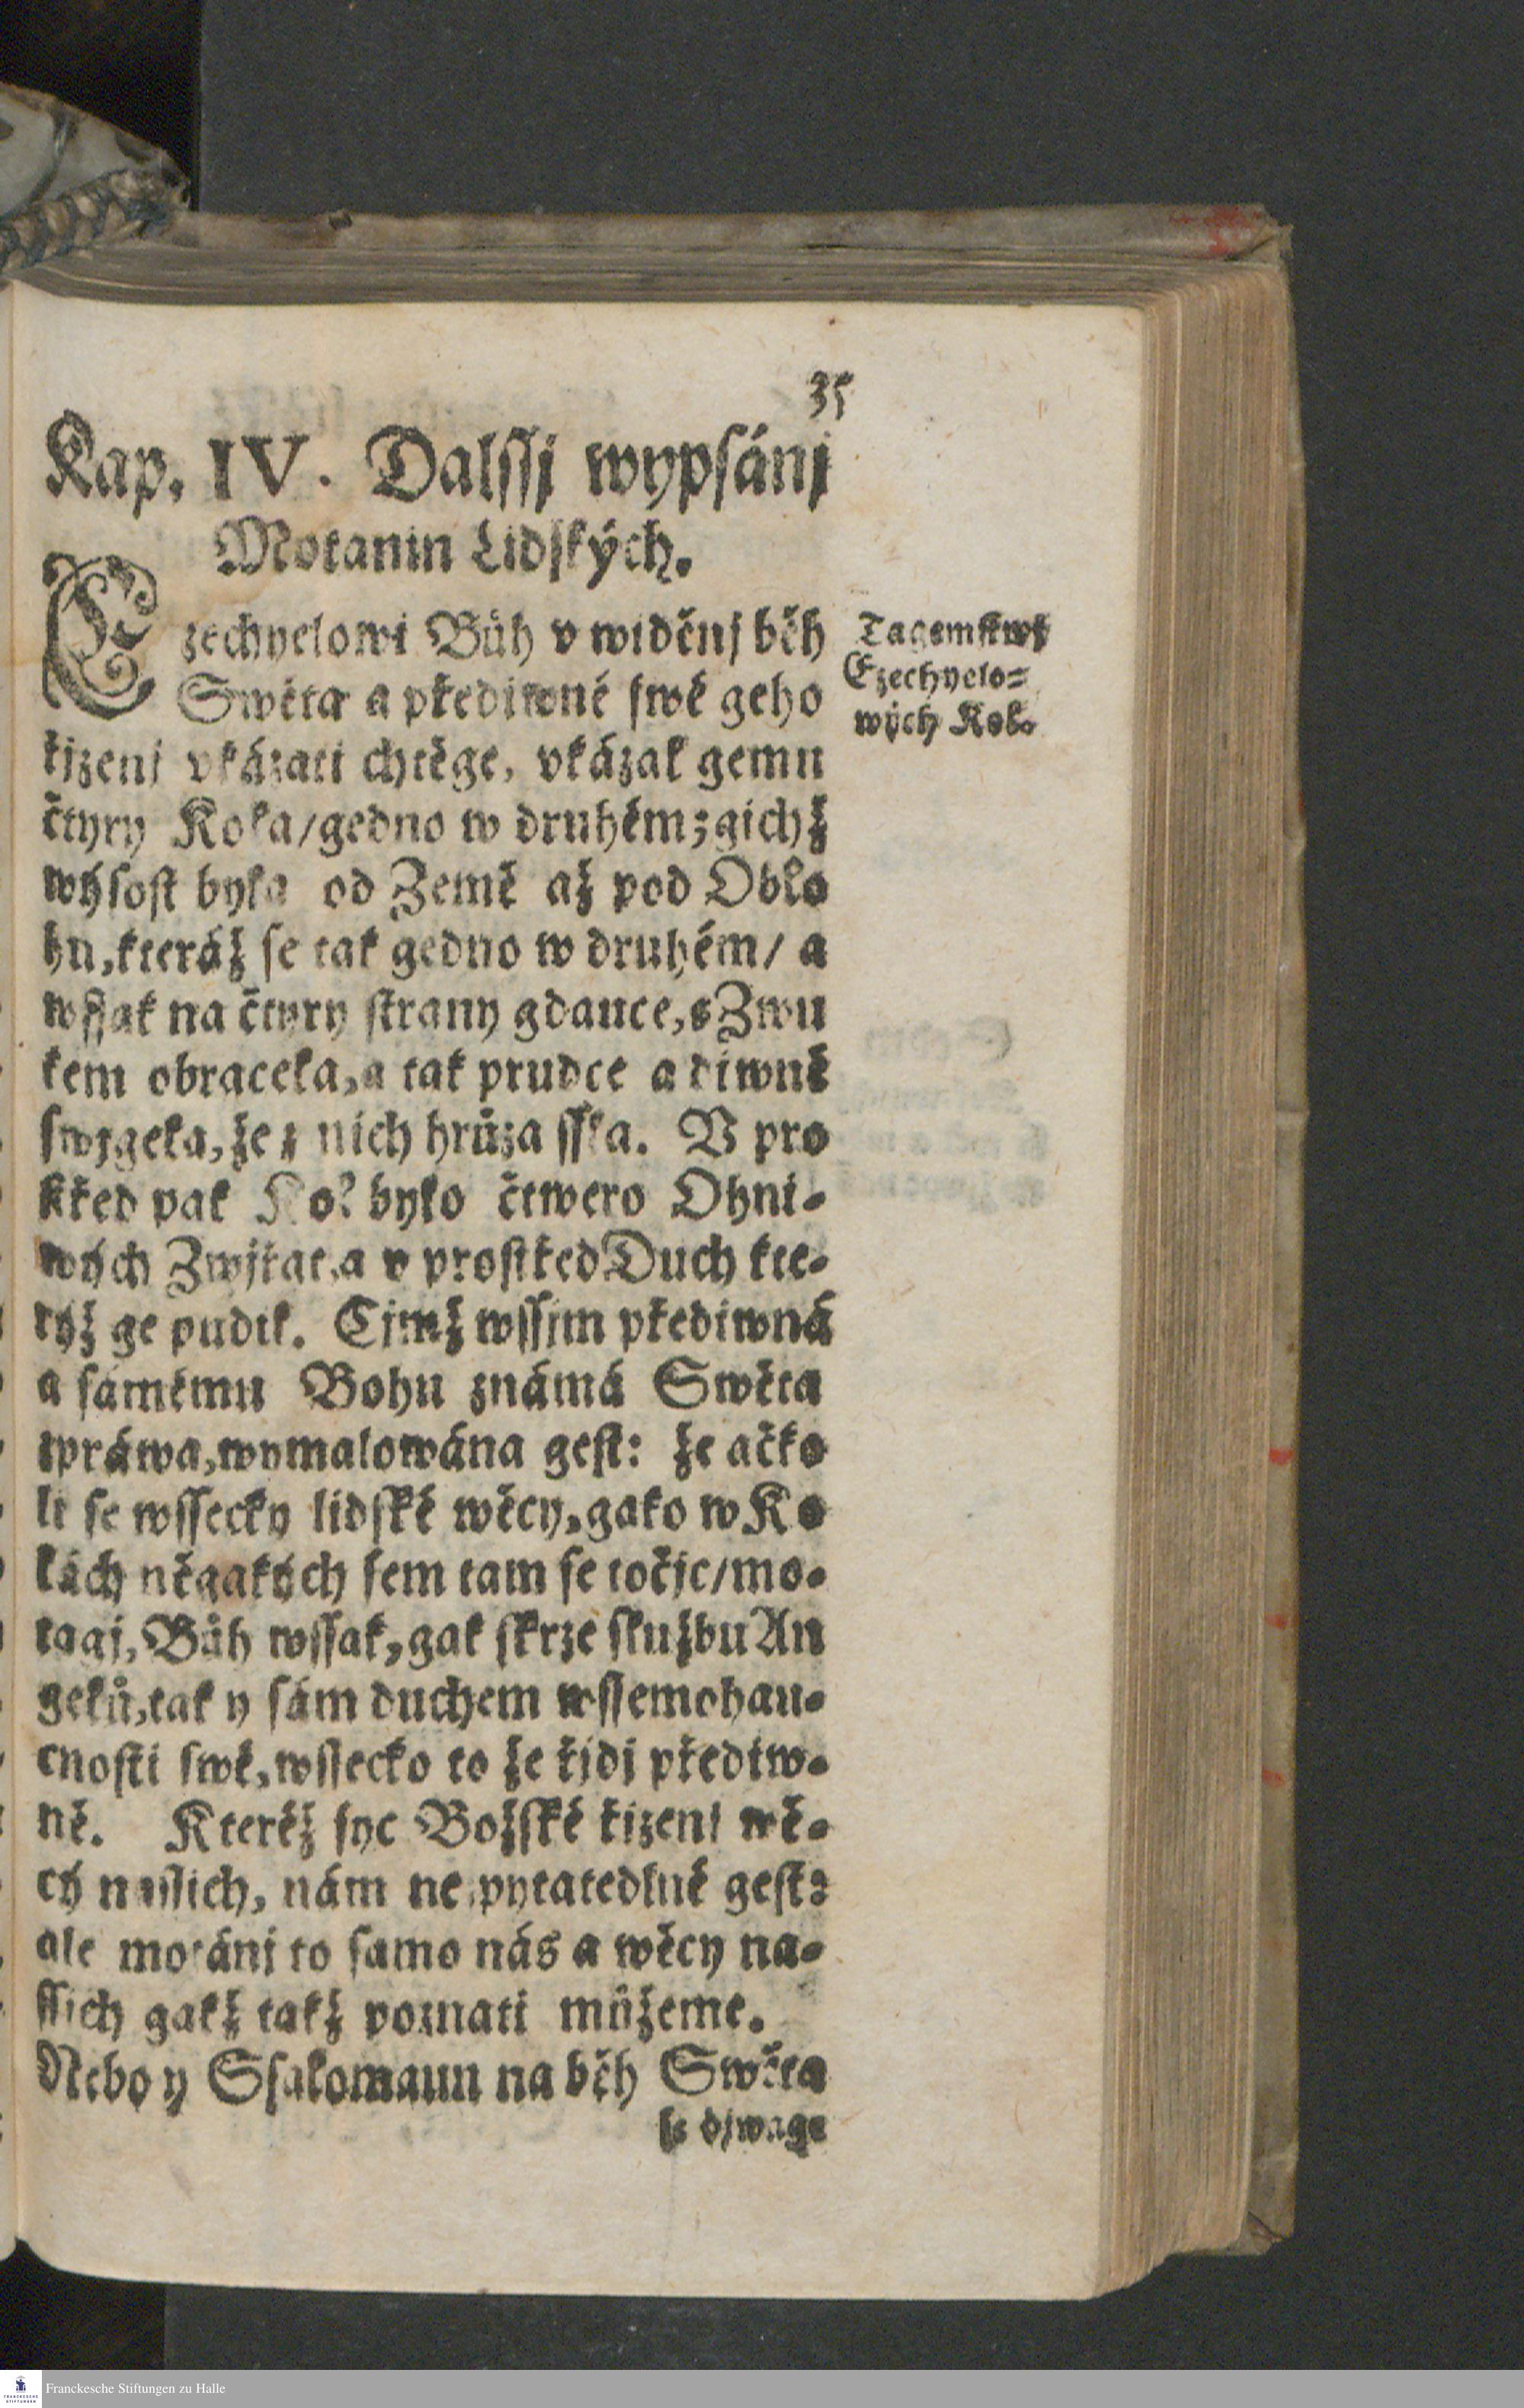 35
Kap. IV. Dalssj wypsánj
Motanin Lidských.
Ezechyelowi Bůh v widěnj běh
Swěta a předjwné swé geho
řjzenj vkázati chtěge, vkázal gemu
čtyry Kola/gedno w druhém; gichž
wýsost byla od Země až pod Oblo
hu, kteráž se tak gedno w druhém/ a
wssak na čtyry strany gdauce, s Zwu
kem obracela, a tak prudce a diwně
swjgela, že z nich hrůza ssla. V pro
střed pak Kol bylo čtwero Ohni-
wých Zwjřat, a v prostřed Duch kte-
rýž ge pudil. Čjmž wssjm přediwná
a samému Bohu známá Swěta
zpráwa, wymalowána gest: že ačko
li se wssecky lidské wěcy, gako w Ko
lách něgakých sem tam se točjc/mo-
tagj, Bůh wssak, gak skrze službu An
gelů, tak y sám duchem wssemohau-
cnosti swé, wssecko to že řjdj přediw-
ně. Kteréž syc Božské řizenj wě-
cý nassich, nám nespytatedlné gest:
ale motánj to samo nás a wěcy na-
ssich gakž takž poznati můžeme.
Nebo y Ssalomaun na běh Swěta
se djwage
Tagemstwj
Ezechyelo-
wých Kol.
Franckesche Stiftungen zu Halle